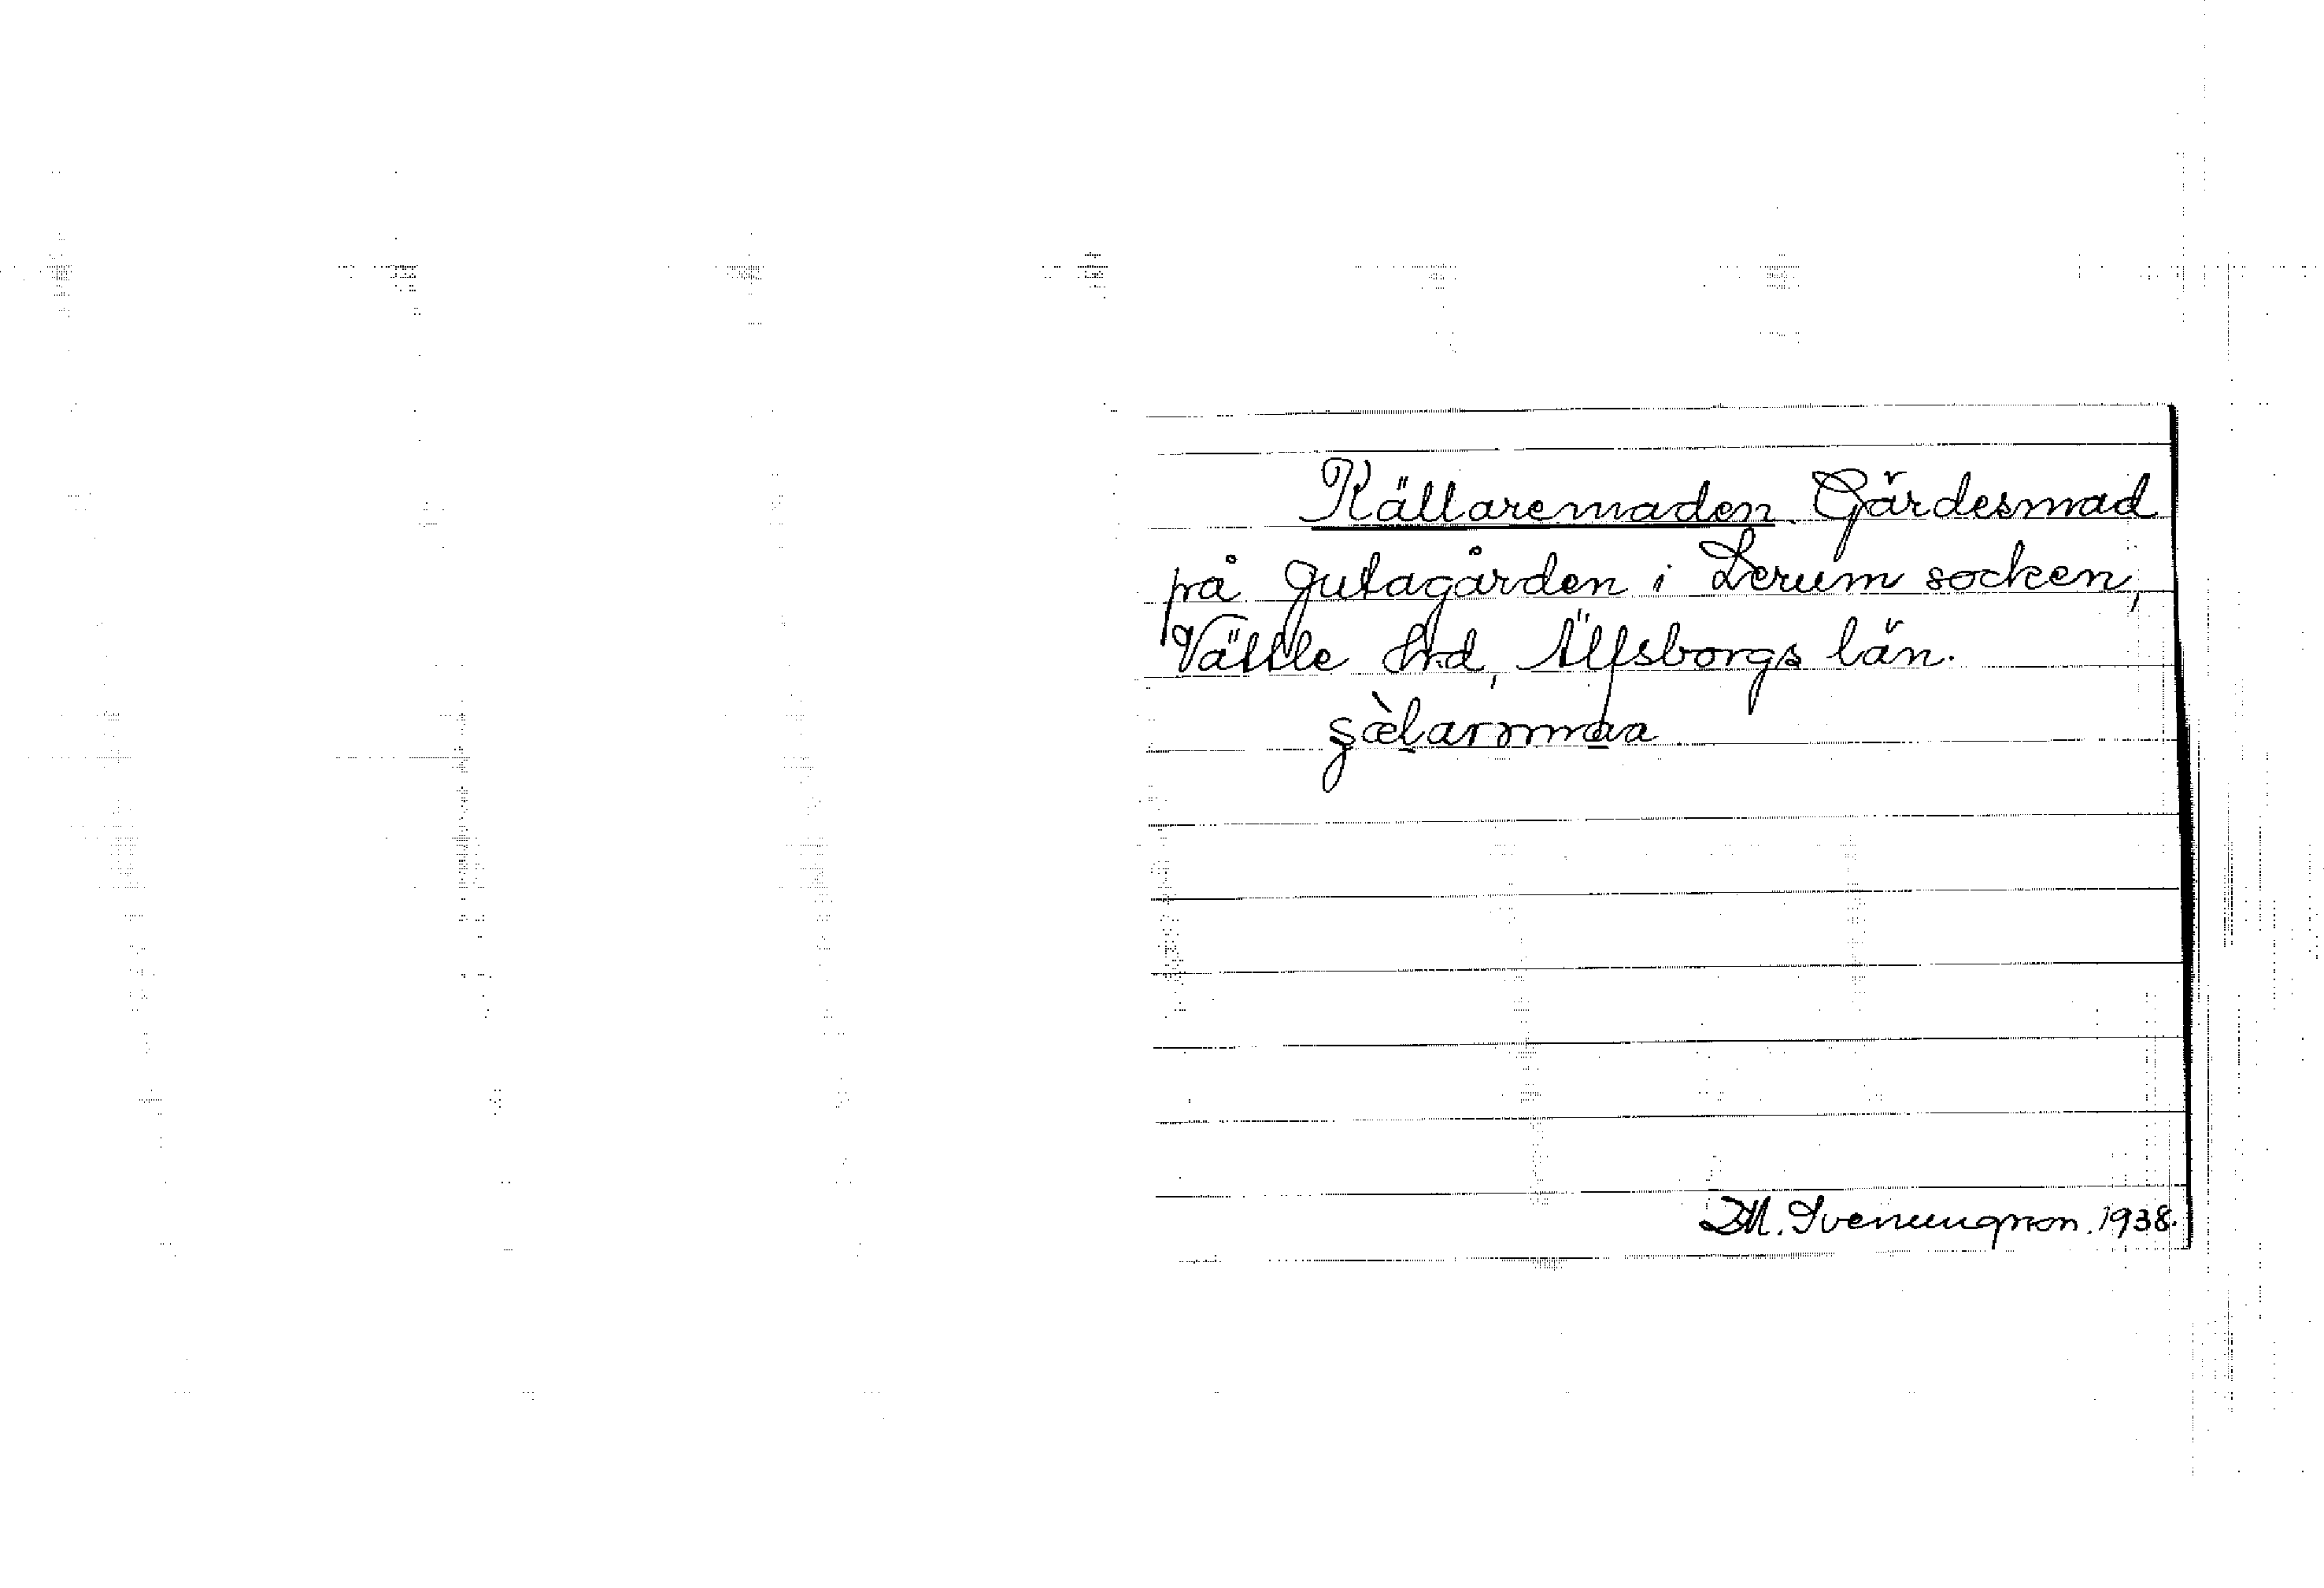 Källaremaden. Gärdesmad
på Gutagården i Lerum socken,
Vättle hd, Älfsborgs län.
M. Svenungson. 1938.